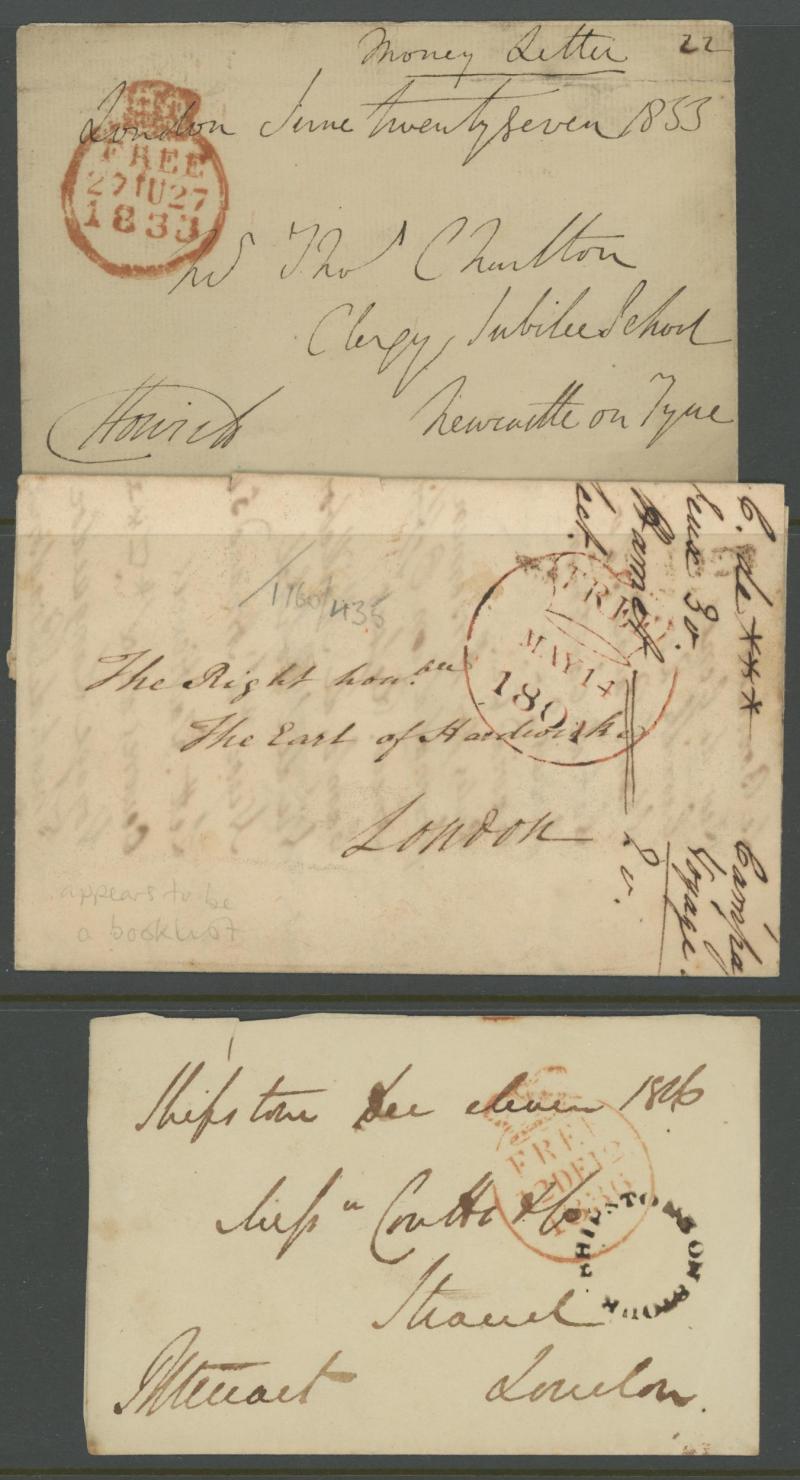 Money Letter 22
London June twenty seven 1833
FREE
27 JU 27
1833
Thos Charlton
Clergy Jubilee School
Newcastle on Tyne
Howick
C. de ***
3 v.
1160/435
FREE
MAY 14
1801
The Right honble
The Earl of Hardwicke
London
2 v.
Voyage.
appears to be
a booklist
Shipston Dec eleven 1836
FREE
12 DE 12
1836
Messrs Coutts & Co
SHIPSTON ON STOUR
Strand
London.